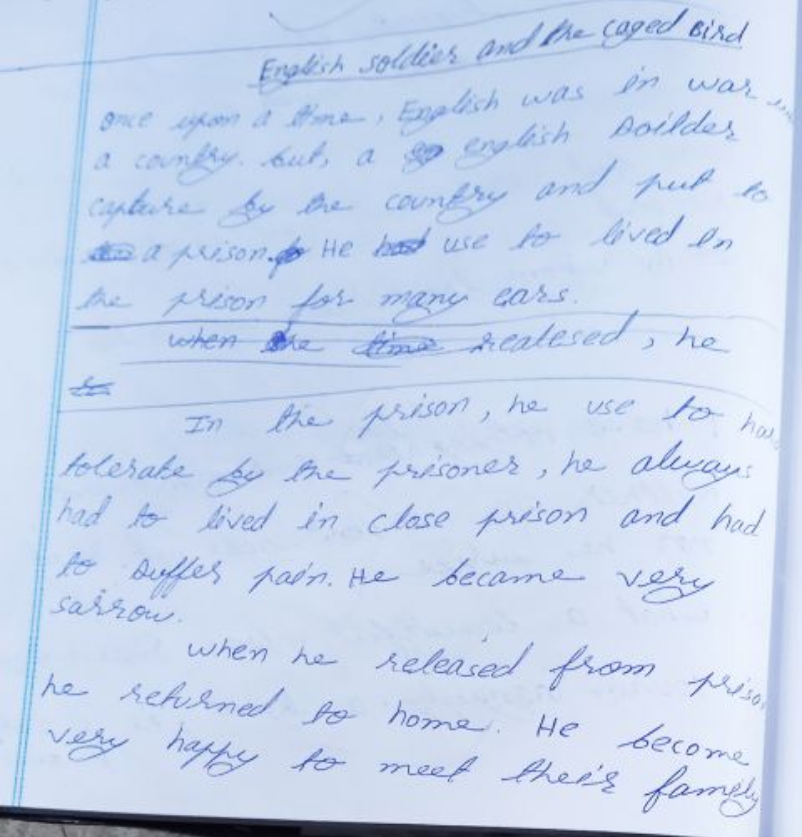 English soldier and the caged Bird
once upon a time, English was in war
a country. but, a english soilder
capture by the country and put to
a prison. He use to lived In
the prison for many ears.
when the time realesed, he
In the prison, he use to
tolerate by the prisoner, he always
had to lived in close prison and had
to suffer pain. He became very
sarrow.
when he released from
he returned to home. He become
very happy to meet their family